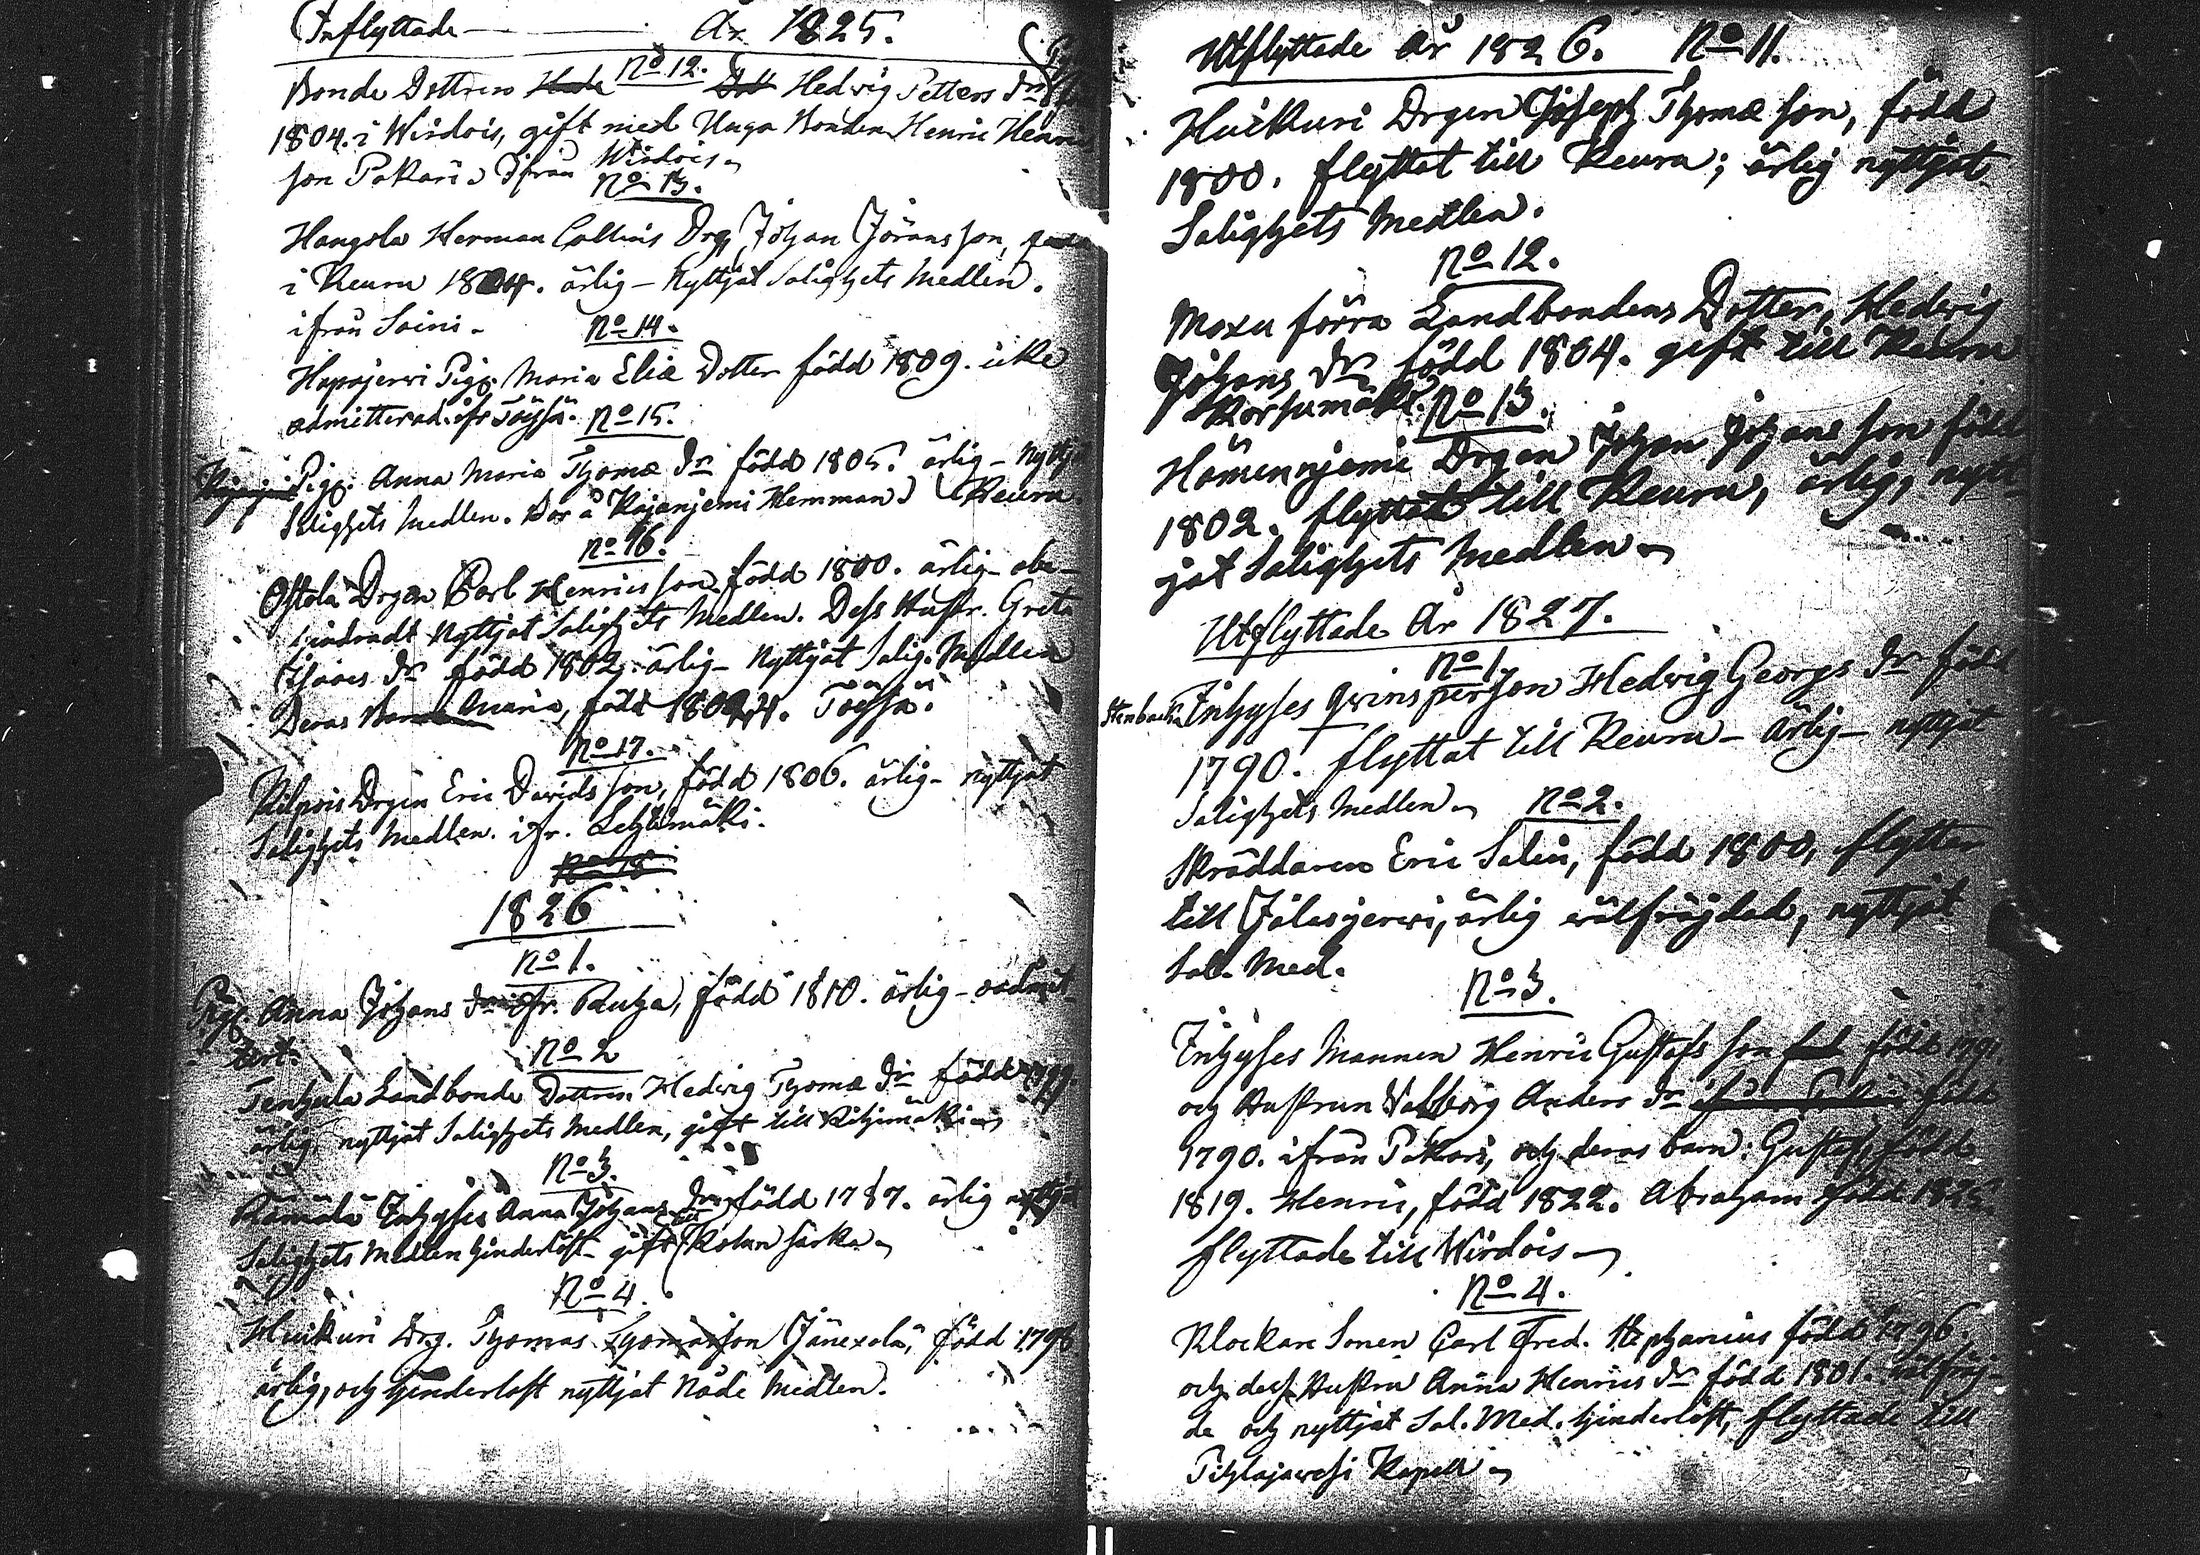 Inflyttade År 1825.
No 12.
Bonde Dottren Hedvig Petters Dr
1804. i Wirdois, gift med Unga Bonden Henric Henric
son Pakari ifrån Wirdois
No 13.
Hangola Herman Collins Drg Johan Jöransson, född
i Keuru 1804. ärlig – Nyttjat Salighets Medlen.
ifrån Soini –
No 14.
Hapojerwi Pig. Maria Eliæ Dotter född 1809. icke
admitterad. ifr Töysä.
No 15.
Pig. Anna Maria Thomæ Dr född 1805. ärlig – Nyttj
Salighets Medlen. Bor å Kojanjemi Hemman Keuru.
No 16.
Ostola Drgen Carl Henricsson född 1800. ärlig – obe-
hindradt Nyttjat Salighets Medlen. Dess Hustr. Greta
Isaacs Dr född 1802. ärlig – Nyttjat Salig. Medlen
Deras Maria, född Töysä.
No 17.
Kilpois Drgen Eric Davidsson, född 1806. ärlig – nyttjat
Salighets Medlen. ifr. Lehtimäki.
No 18
1826
No 1.
Pig. Anna Johans Dr ifr. Ruha, född 1810. ärlig – oadmit-
tert.
No 2
Tenhula Landbonde Dottren Hedvig Thomæ Dr född
ärlig, nyttjat Salighets Medlen, gift till Riihimäki
No 3.
Rämälä Inhyses Anna Johans Dr född 1787. ärlig nyttjat
Salighets Medlen hinderlöst – gift till Kolunsarka
No 4.
Huikuri Drg. Thomas Thomasson Jänexelä, född 1796
ärlig, och hinderlöst nyttjat Nåde Medlen.
Utflyttade År 1826. No 11.
Huikuri Drgen Joseph Thomæ son, född
1800. flyttat till Keuru; ärlig nyttjat
Salighets Medlen.
No 12.
Moxu förra Landbondens Dotter, Hedvig
Johans Dr född 1804. gift till Keuru
Korsumäki.
No 13.
Hömennjemi Drgen Johan Johansson född
1802. flyttat till Keuru, ärlig, nytt-
jat Salighets Medlen
Utflyttade År 1827.
No 1.
Stenbacka Inhyses Qvinsperson Hedvig Georgs Dr född
1790. flyttat till Keuru – ärlig – nyttjat
Salighets Medlen
No 2.
Skräddaren Eric Salin, född 1800, flyttar
till Jälasjerwi, ärlig wälfrägdad, nyttjat
Sal. Med.
No 3.
Inhyses Mannen Henric Gustafs son född 1791
och Hustrun Valborg Anders Dr född
1790. ifrån Pakari, och deras barn: Gustaf, född
1819. Henric, född 1822. Abraham född 1825.
flyttade till Wirdois
No 4.
Klockare Sonen Carl Fred. Stephanius född 1796.
och dess Hustru Anna Henrics Dr född 1801. wälfräj-
de och nyttjat Sal. Med. hinderlöst, flyttade till
Pihlajawesi Kapell